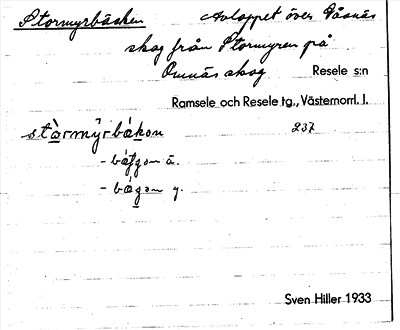 Stormyrbäcken Avloppet över Våsnäs
skog från Stormyren på
Omnäs skog Resele s:n
Ramsele och Resele tg., Västernorrl. l.
stòrmy̌rbákon 237
- bátgon ä.
- bágon y.
Sven Hiller 1933